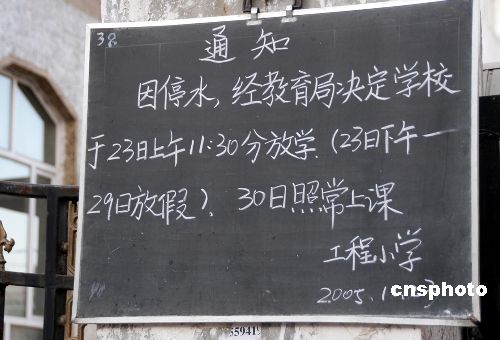 38
通知
因停水,经教育局决定学校
于23日上午11:30分放学.(23日下午一
29日放假)。30日照常上课
工程小学
2005.1
cnsphoto